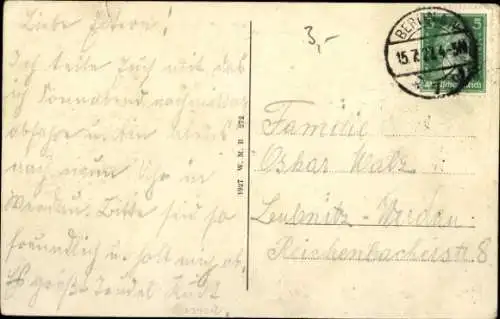 Liebe Eltern!
Ich teile Euch mit daß
ich Sonnabend nachmittag
abfahre u. bin
nach neun Uhr in
Werdau. Bitte seid so
freundlich u. holt mich ab.
Es grüßt Kurt
3,-
BERLIN
15.7.27.4-5N
5
Deutsches Reich
1927 W. M. B 272
Familie
Oskar Walz
Leubnitz-Werdau
Reichenbacherstr 8